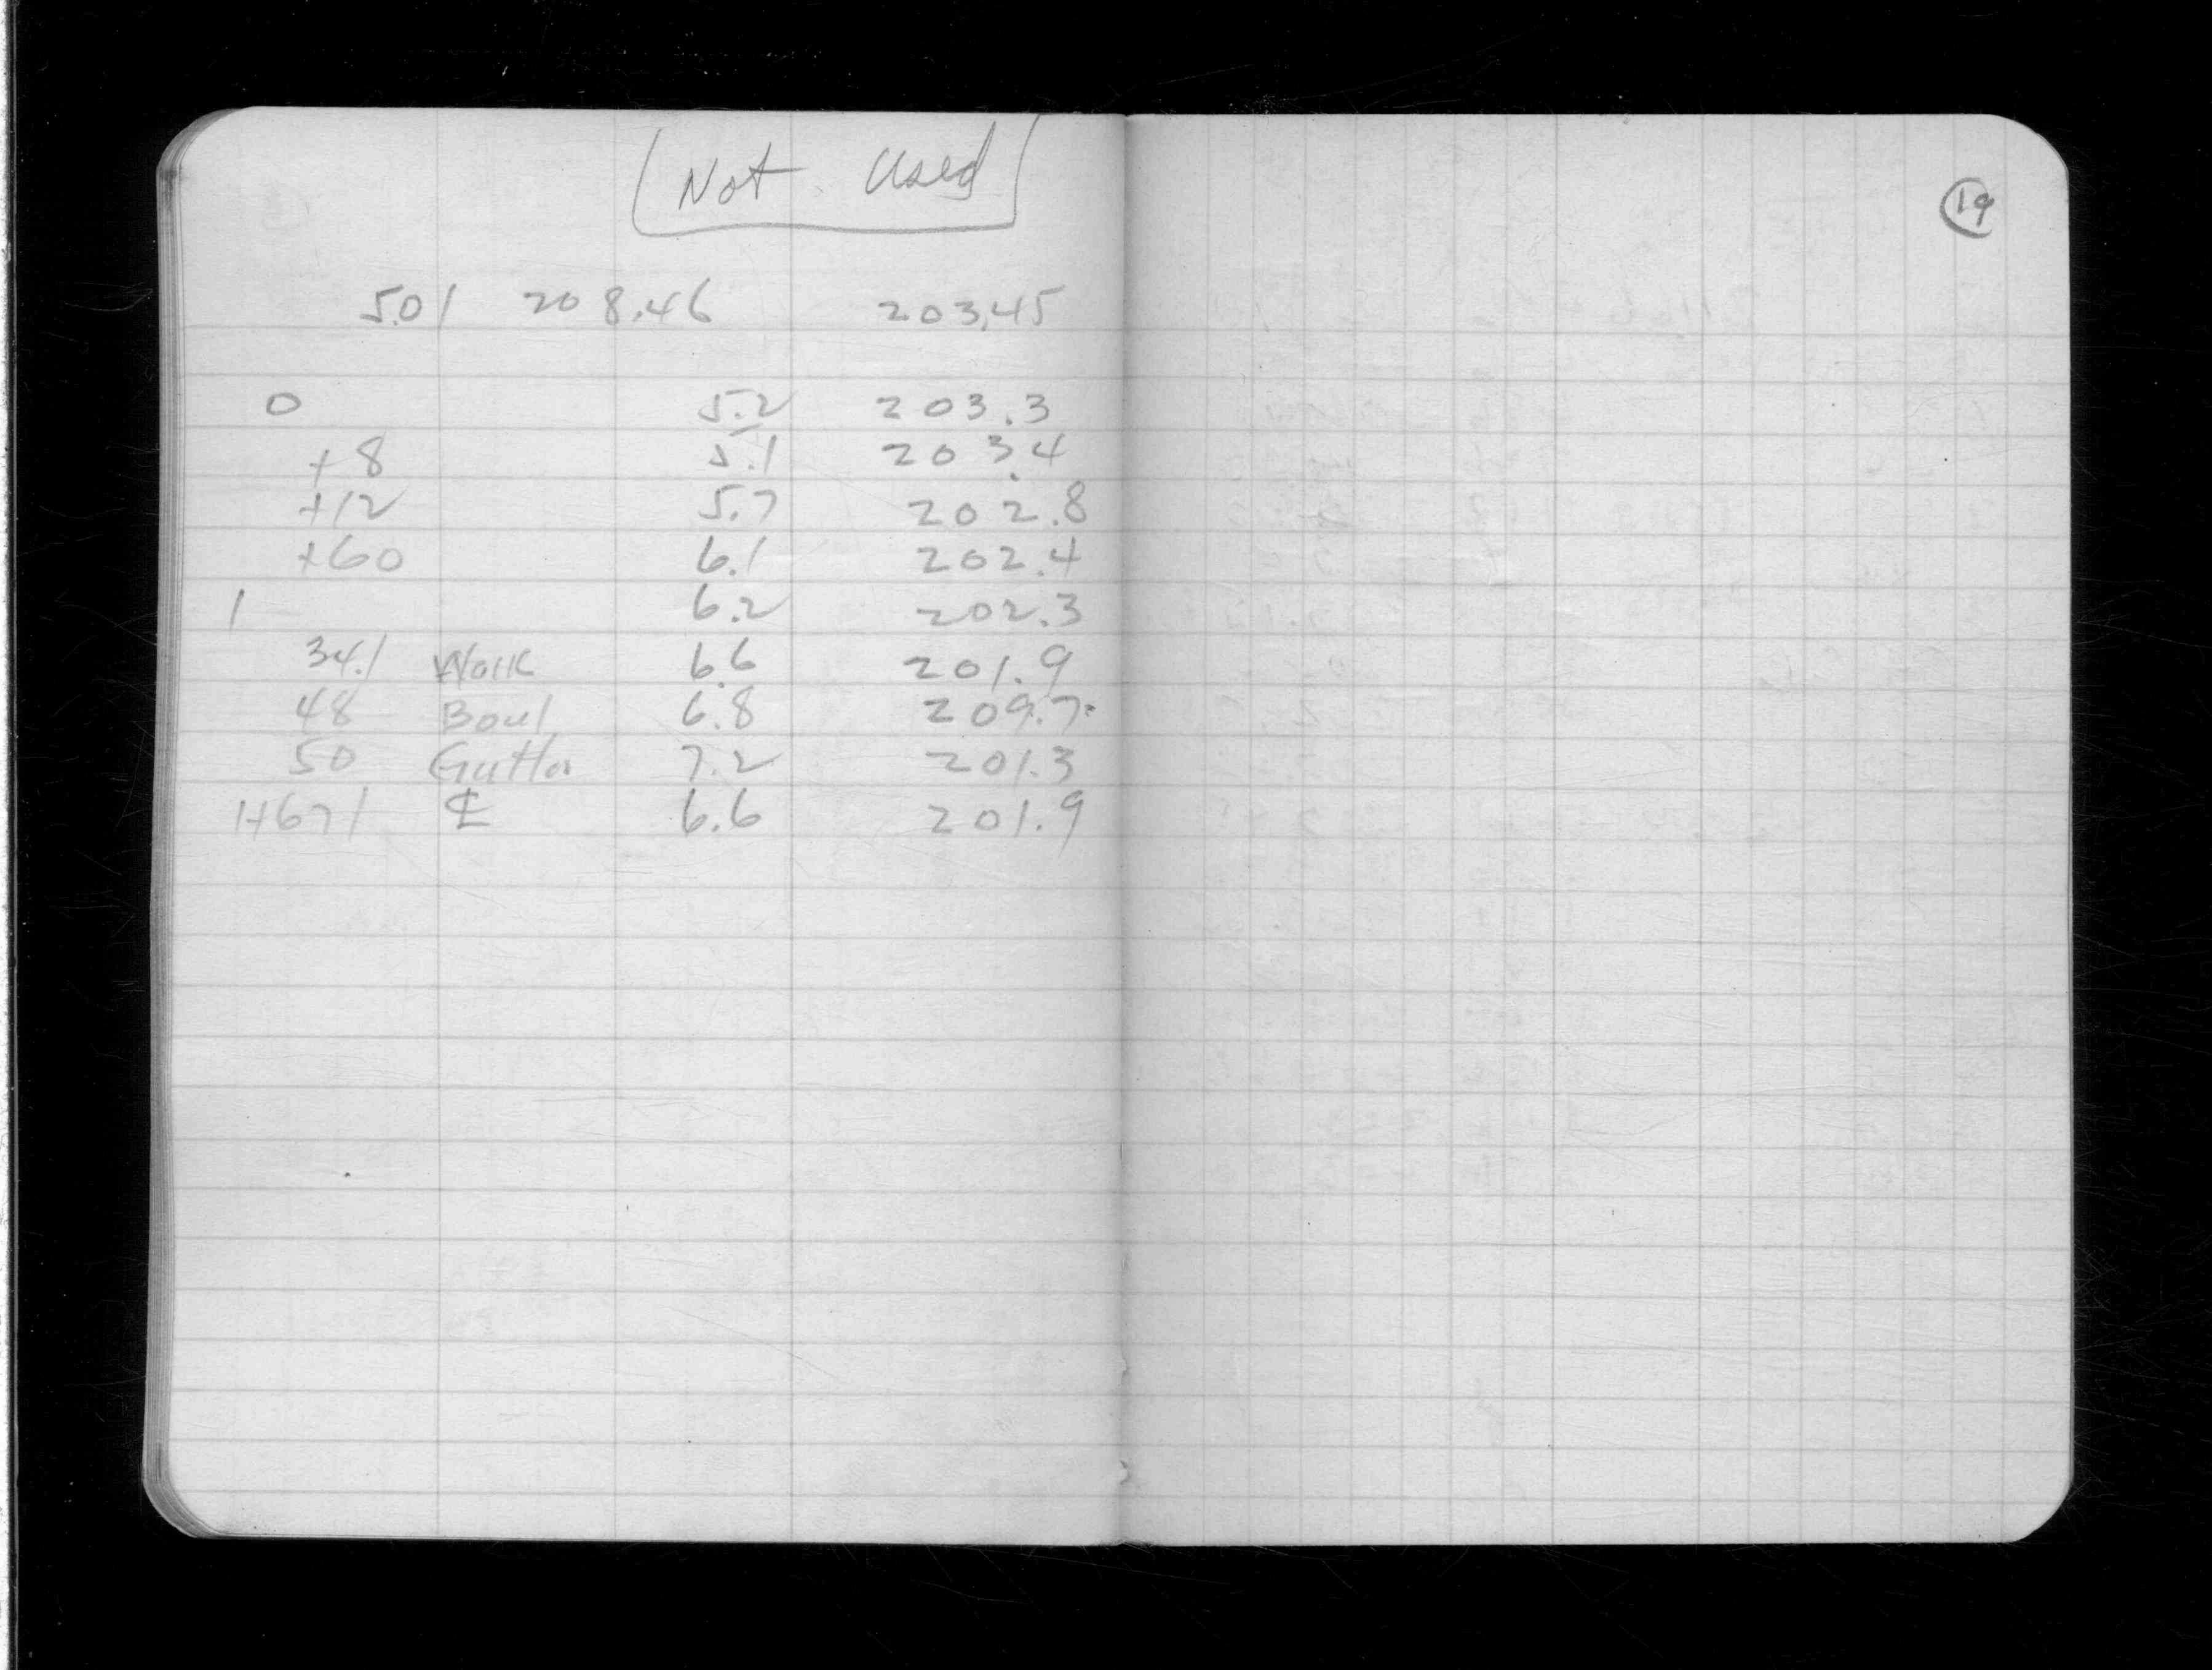 Not Used
19
5.01 208.46 203.45
0 5.2 203.3
+8 5.1 203.4
+12 5.7 202.8
+60 6.1 202.4
1 6.2 202.3
34.1 Walk 6.6 201.9
48 Boul 6.8 209.7
50 Gutter 7.2 201.3
1+671 ℄ 6.6 201.9